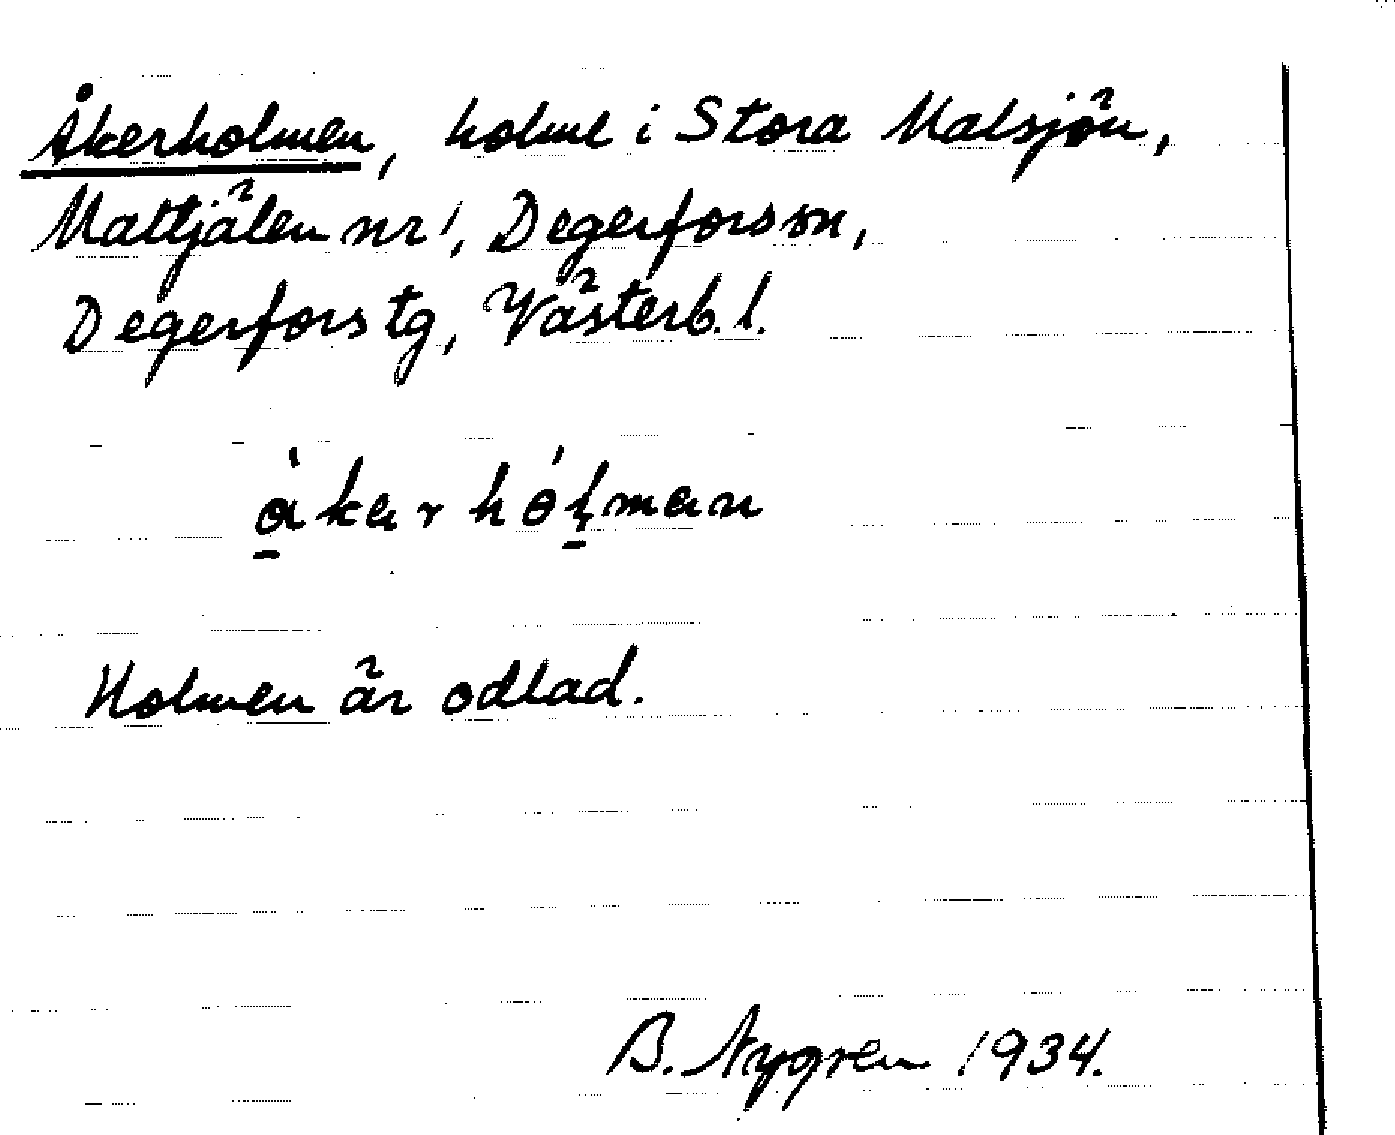 Åkerholmen, holme i Stora Malsjön,
Maltjälen nr 1, Degerfors sn,
Degerfors tg, Västerb. l.
åkar hólman
Holmen är odlad.
B. Nygren 1934.